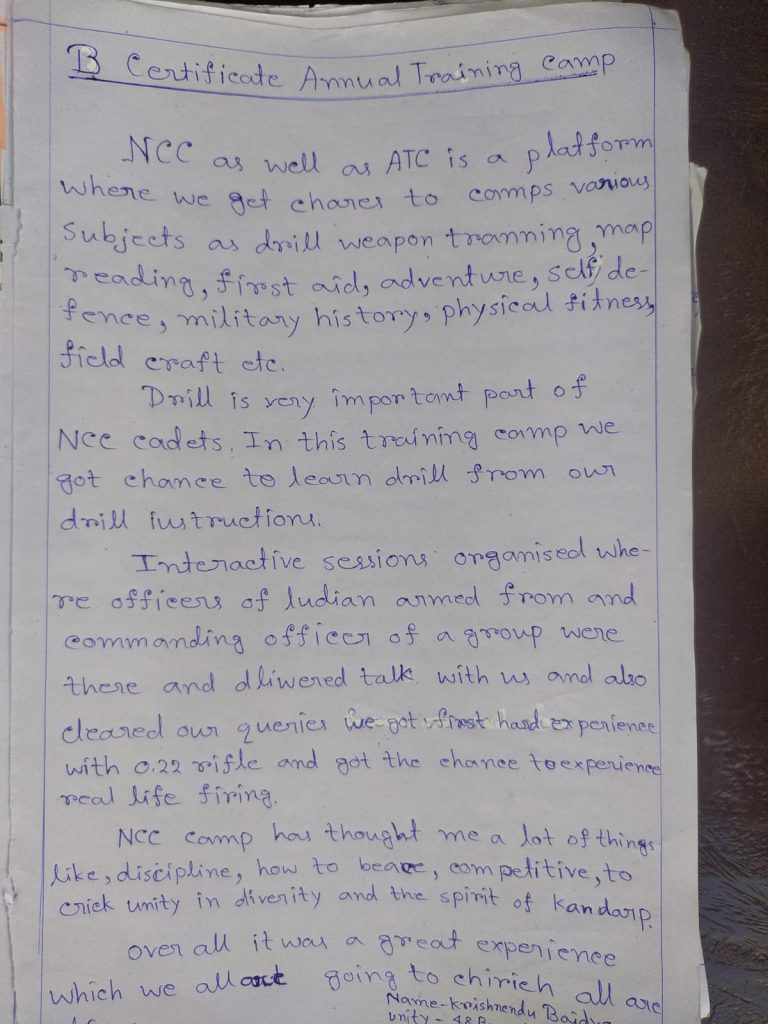 B Certificate Annual Training Camp
NCC as well as ATC is a platform
where we get chares to camps various
Subjects as drill weapon tranning, map
reading, first aid, adventure, self, de-
fence, military history, physical fitness,
field craft etc.
Drill is very important part of
NCC cadets. In this training camp we
got chance to learn drill from our
drill iustructions.
Interactive sessions organised whe-
re officers of Iudian armed from and
commanding officer of a group were
there and dliwered talk with us and also
cleared our queries we got first hard experience
with 0.22 rifle and got the chance to experience
real life firing.
NCC camp has thought me a lot of things
like, discipline, how to beare, competitive, to
crick unity in diverity and the spirit of Kandarp.
over all it was a great experience
which we all are going to chirich all are
Name-Krishnendu Baidya
unity - 48B